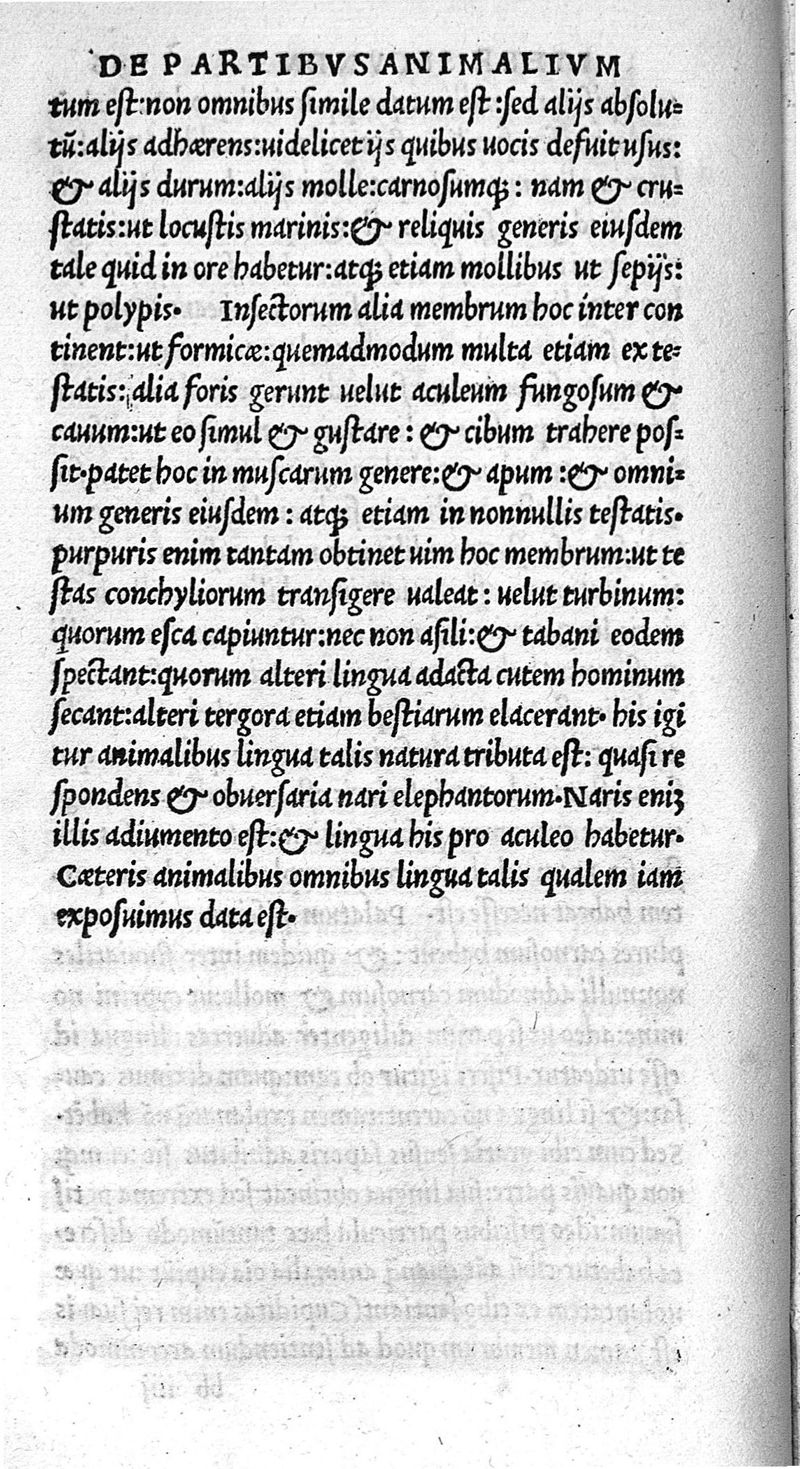 DE PARTIBVS ANIMALIVM
tum eſt:non omnibus ſimile datum eſt :ſed alijs abſolu=
tū:alijs adhærens:uidelicet ijs quibus uocis defuit uſus:
& alijs durum:alijs molle:carnoſumq; : nam & cru=
ſtatis:ut locuſtis marinis:& reliquis generis eiuſdem
tale quid in ore habetur:atq; etiam mollibus ut ſepijs:
ut polypis. Inſectorum alia membrum hoc inter con
tinent:ut formicæ:quemadmodum multa etiam ex te=
ſtatis: alia foris gerunt uelut aculeum fungoſum &
cauum:ut eo ſimul & guſtare : & cibum trahere poſ=
ſit.patet hoc in muſcarum genere:& apum :& omni=
um generis eiuſdem : atq; etiam in nonnullis teſtatis.
purpuris enim tantam obtinet uim hoc membrum:ut te
ſtas conchyliorum tranſigere ualeat : uelut turbinum:
quorum eſca capiuntur:nec non aſili:& tabani eodem
ſpectant:quorum alteri lingua adacta cutem hominum
ſecant:alteri tergora etiam beſtiarum elacerant. his igi
tur animalibus lingua talis natura tributa eſt: quaſi re
ſpondens & obuerſaria nari elephantorum.Naris eniʒ
illis adiumento eſt:& lingua his pro aculeo habetur.
Cæteris animalibus omnibus lingua talis qualem iam
expoſuimus data eſt.